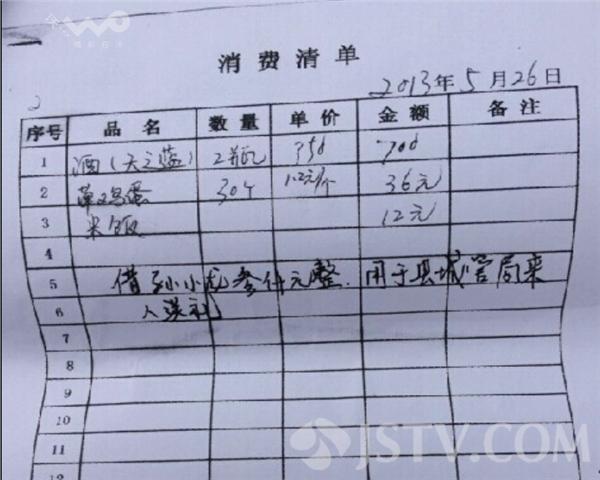 消费清单
2013年5月26日
2
序号 品名 数量 单价 金额 备注
1 酒(天之蓝) 2瓶 350 700
2 草鸡蛋 30个 1.2元/个 36元
3 米饭 12元
4
5 借孙小龙叁仟元整.用于县城管局来
6 人送礼
7
8
9
10
11
12
JSTV.COM